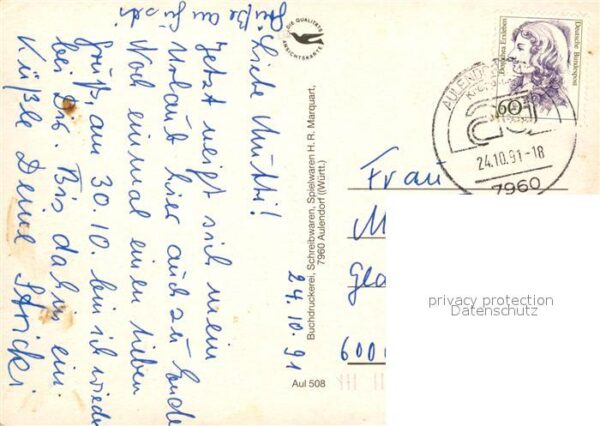 Grüße an Güschi
24.10.91
Liebe Mutti!
Jetzt neigt sich mein
Urlaub hier auch zu Ende
Noch einmal einen lieben
Gruß, am 30.10. bin ich wieder
bei Dir. Bis dahin ein
Küßle Deine
DIE QUALITÄTS
ANSICHTSKARTE
Buchdruckerei, Schreibwaren, Spielwaren H. R. Marquart,
7960 Aulendorf (Württ.)
Aul 508
Deutsche Bundespost
60
AULENDORF
24.10.91-18
7960
Frau
M
Geo
6000
privacy protection
Datenschutz